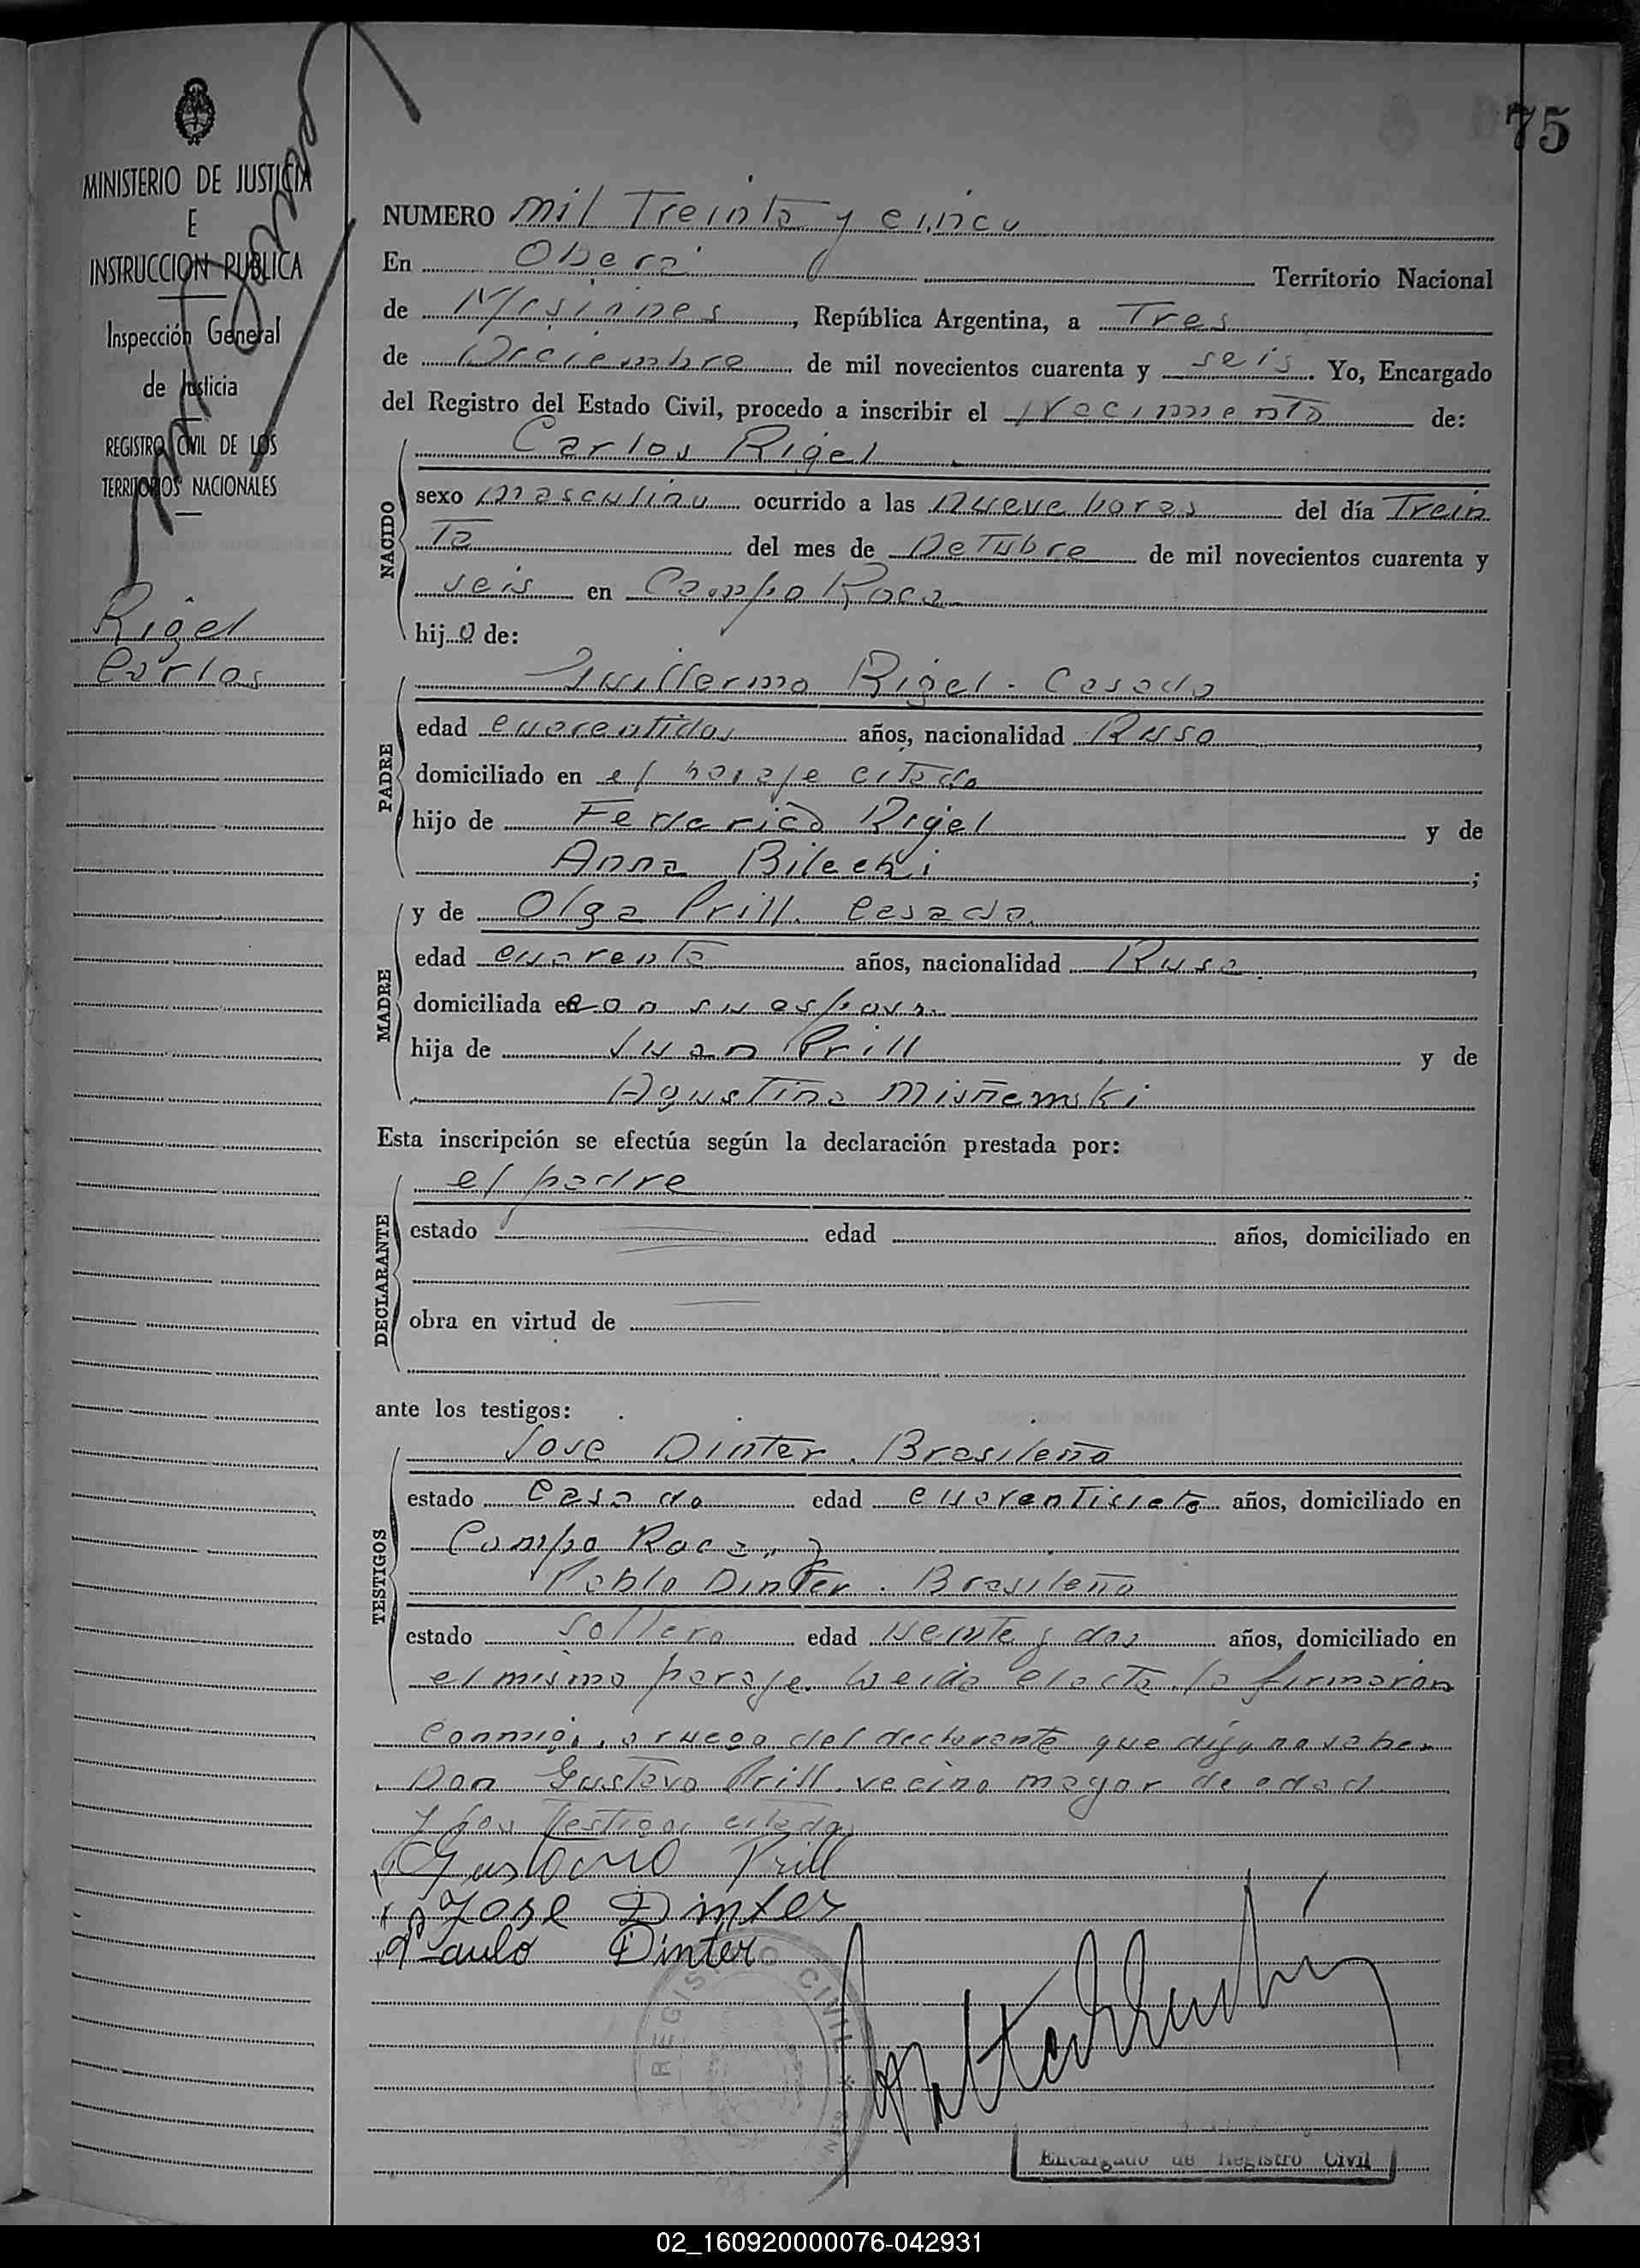 75
MINISTERIO DE JUSTICIA
E
INSTRUCCION PUBLICA
Inspección General
de Justicia
REGISTRO CIVIL DE LOS
TERRITORIOS NACIONALES
Rigel
Carlos
NUMERO mil Treinta y cinco
En Oberá Territorio Nacional
de Misiones, República Argentina, a Tres
de Diciembre de mil novecientos cuarenta y seis. Yo, Encargado
del Registro del Estado Civil, procedo a inscribir el Nacimiento de:
Carlos Rigel
NACIDO
sexo masculino ocurrido a las nueve horas del día Trein
ta del mes de Octubre de mil novecientos cuarenta y
seis en Campo Roca
hijo de:
Guillermo Rigel. Casado
PADRE
edad cuarentidos años, nacionalidad Ruso,
domiciliado en el paraje citado
hijo de Federico Rigel y de
Anna Bilecki;
MADRE
y de Olga Prill. casada.
edad cuarenta años, nacionalidad Rusa.,
domiciliada en con su esposo.
hija de Juan Prill y de
Agustina Misñemski
Esta inscripción se efectúa según la declaración prestada por:
el padre
DECLARANTE
estado edad años, domiciliado en
obra en virtud de
ante los testigos:
Jose Dinter. Brasileño
TESTIGOS
estado Casado edad cuarentisiete años, domiciliado en
Campo Roca y
Pablo Dinter. Brasileño
estado soltero edad veinte y dos años, domiciliado en
el mismo paraje. Leida el acta la firmaron
conmigo, a ruego del declarante que dijo no saber
Don Gustavo Prill. vecino mayor de edad
y los testigos citados
Gustavo Prill
Jose Dinter
Paulo Dinter
REGISTRO CIVIL
Encargado de Registro Civil
02_160920000076-042931